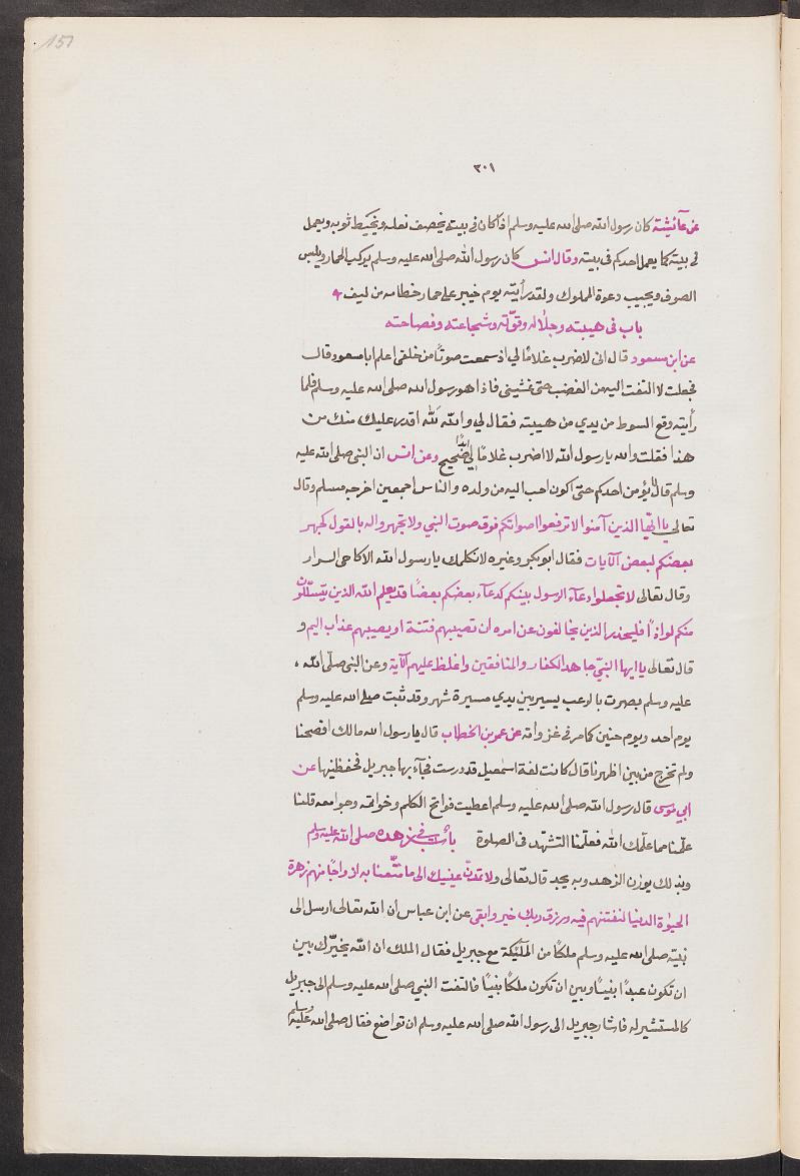 151
٣٠١
عن عآئيشة كان رسول الله صلى الله عليه وسلم اذا كان فى بيته يخصف نعله ويخيط ثوبه ويعمل
فى بيته كما يعمل احدكم فى بيته وقال انس كان رسول الله صلى الله عليه وسلم يركب الحمار ويلبس
الصوف ويجيب دعوة المملوك ولقد رأيته يوم خيبر على حمار خطامه من ليف
باب فى هيبته وجلاله وقوّته وشجاعته وفصاحته
عن ابن مسعود قال انى لاضرب غلامًا لي اذ سمعت صوتًا من خلفى اعلم ابا مسعود قال
فجعلت لا التفت اليه من الغضب حتى غشينى فاذا هو رسول الله صلى الله عليه وسلم فلما
رأيته وقع السوط من يدي من هيبته فقال لي والله لله اقدر عليك منك من
هذا فقلت والله يا رسول الله لا اضرب غلامًا لي ابدًا صحيح وعن انس ان النبى صلى الله عليه
وسلم قال لا يؤمن احدكم حتى اكون احب اليه من ولده والناس اجمعين اخرجه مسلم وقال
تعالى يا ايّها الذين آمنوا لا ترفعوا اصواتكم فوق صوت النبي ولا تجهروا له بالقول كجهر
بعضكم لبعض الآيات فقال ابو بكر وغيره لا نكلمك يا رسول الله الا كاخى السرار
وقال تعالى لا تجعلوا دعآء الرسول بينكم كدعآء بعضكم بعضًا قد يعلم الله الذين يتسلّلون
منكم لواذًا فليحذر الذين يخالفون عن امره ان تصيبهم فتنة او يصيبهم عذاب اليم و
قال تعالى يا ايها النبيّ جاهد الكفار والمنافقين واغلظ عليهم الآية وعن النبى صلّى الله
عليه وسلم نصرت بالرعب يسير بين يدي مسيرة شهر وقد ثبت صلى الله عليه وسلم
يوم احد ويوم حنين كما مر فى غزواته عن عمر بن الخطاب قال يا رسول الله مالك افصحنا
ولم تخرج من بين اظهرنا قال كانت لغة اسمعيل قد درست فجآء بها جبريل فحفظنيها عن
ابي موسى قال رسول الله صلى الله عليه وسلم اعطيت فواتح الكلم وخواتمه وجوامعه قلنا
علّمنا مما علّمك الله فعلّمنا التشهّد فى الصلوة باب فى زهده صلى الله عليه وسلم
وبذلك يوزن الزهد وبه يحد قال تعالى ولا تمدنّ عينيك الى ما متّعنا به ازواجًا منهم زهرة
الحيوة الدنيا لنفتنهم فيه ورزق ربك خير وابقى عن ابن عباس ان الله تعالى ارسل الى
نبيّه صلى الله عليه وسلم ملكًا من الملئكة مع جبريل فقال الملك ان الله يخيّرك بين
ان تكون عبدًا نبيًا وبين ان تكون ملكًا نبيًا فالتفت النبي صلى الله عليه وسلم الى جبريل
كالمستشير له فاشار جبريل الى رسول الله صلى الله عليه وسلم ان تواضع فقال صلى الله عليه وسلم